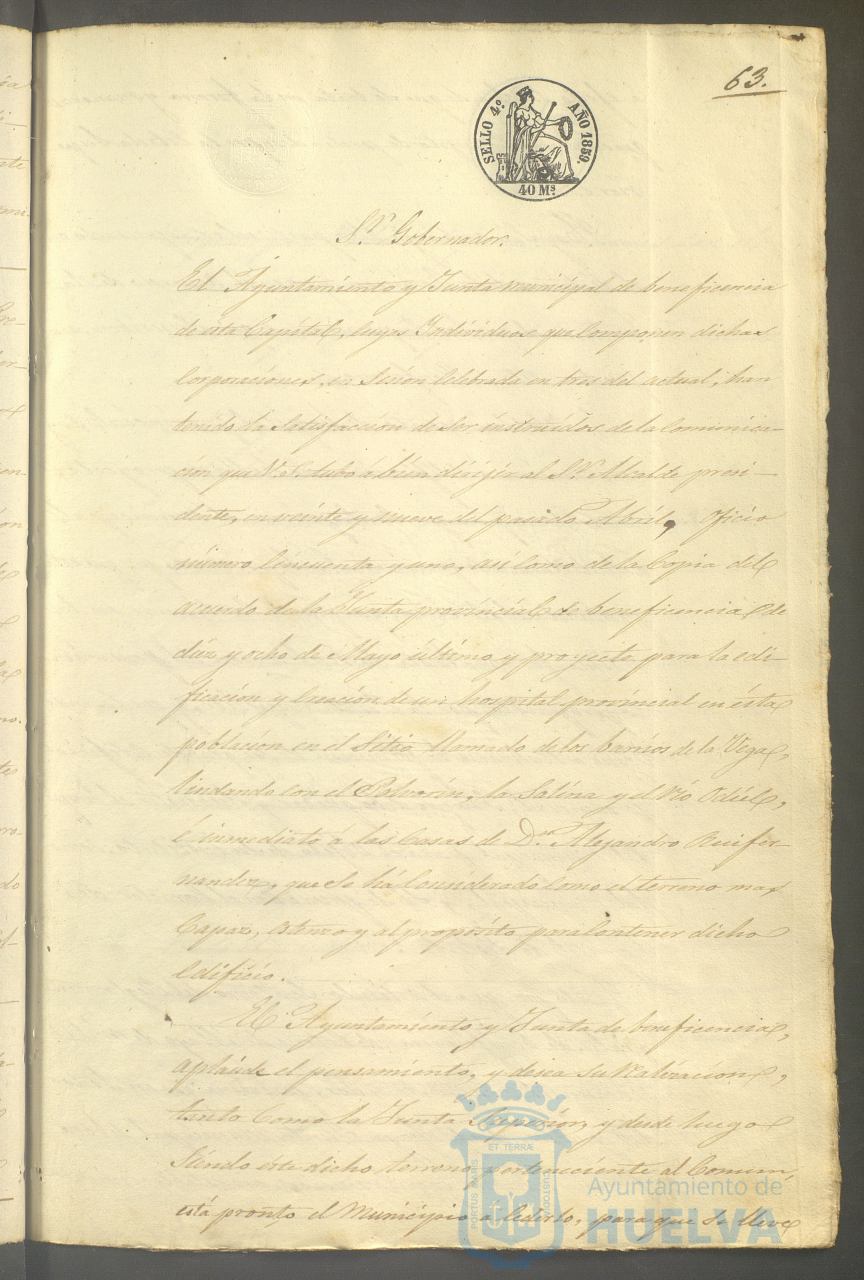 63.
SELLO 4º AÑO 1859.
40 Ms.
Sr. Gobernador.
El Ayuntamiento y Junta municipal de beneficencia
de esta Capital, cuyos Individuos que componen dichas
corporaciones, en Sesion Celebrada en tres del actual, han
tenido la Satisfaccion de Ser instruidos de la Comunica-
cion que V.S. tubo á bien dirijir al Sr. Alcalde presi-
dente, en veinte y nueve del pasado Abril, oficio
número Cincuenta y uno, así Como de la Copia del
acuerdo de la Junta provincial de beneficencia de
diez y ocho de Mayo último y proyecto para la edi-
ficacion y Creacion de un hospital provincial en ésta
poblacion en el Sitio llamado de los barrios de la Vega,
lindando con el Polvorin, la Salina y el Rio Odiel,
é inmediato á las Casas de Dn. Alejandro Ruifer-
nandez, que se há Considerado Como el terreno mas
Capaz, estenso y al propósito para Contener dicho
edificio.
El Ayuntamiento y Junta de beneficencia,
aplaude el pensamiento, y desea Su realizacion,
tanto Como la Junta Superior, y desde luego
Siendo este dicho terreno perteneciente al Comun,
está pronto el Municipio a Cederlo, para que Se lleve
ET TERRÆ
PORTUS MARIS
CUSTODIA
Ayuntamiento de
HUELVA